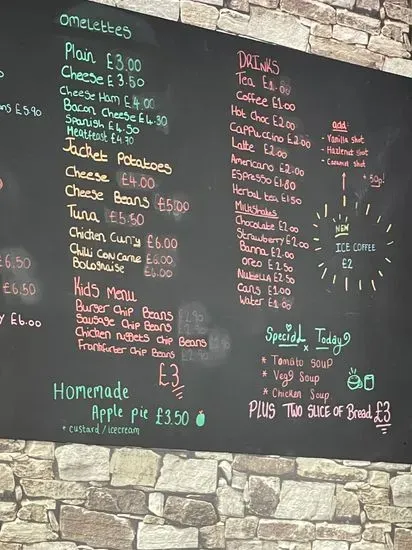 ns £5.90
£6.50
£6.50
y £6.00
Omelettes
Plain £3.00
Cheese £3.50
Cheese Ham £4.00
Bacon Cheese £4.30
Spanish £4.50
Meatfeast £4.70
Jacket Potatoes
Cheese £4.00
Cheese Beans £5.00
Tuna £5.50
Chicken Curry £6.00
Chilli Con Carne £6.00
Bolognaise £6.00
Kids Menu
Burger Chip Beans
Sausage Chip Beans
Chicken nuggets chip Beans
Frankfurter Chip Beans
£3
Homemade
Apple pie £3.50
+ custard / icecream
DRINKS
Tea £1.00
Coffee £1.00
Hot Choc £2.00
Cappuccino £2.00
Latte £2.00
Americano £2.00
Espresso £1.80
Herbal tea £1.50
Milkshakes
Chocolate £2.00
Strawberry £2.00
Banna £2.00
Oreo £2.50
Nutella £2.50
Cans £1.00
Water £1.00
add:
- Vanilla shot
- Hazlenut shot
- Caramel shot
+ 50p!
NEW
ICE COFFEE
£2
Special Today
* Tomato soup
* Veg Soup
* Chicken Soup
PLUS TWO SLICE OF Bread £3